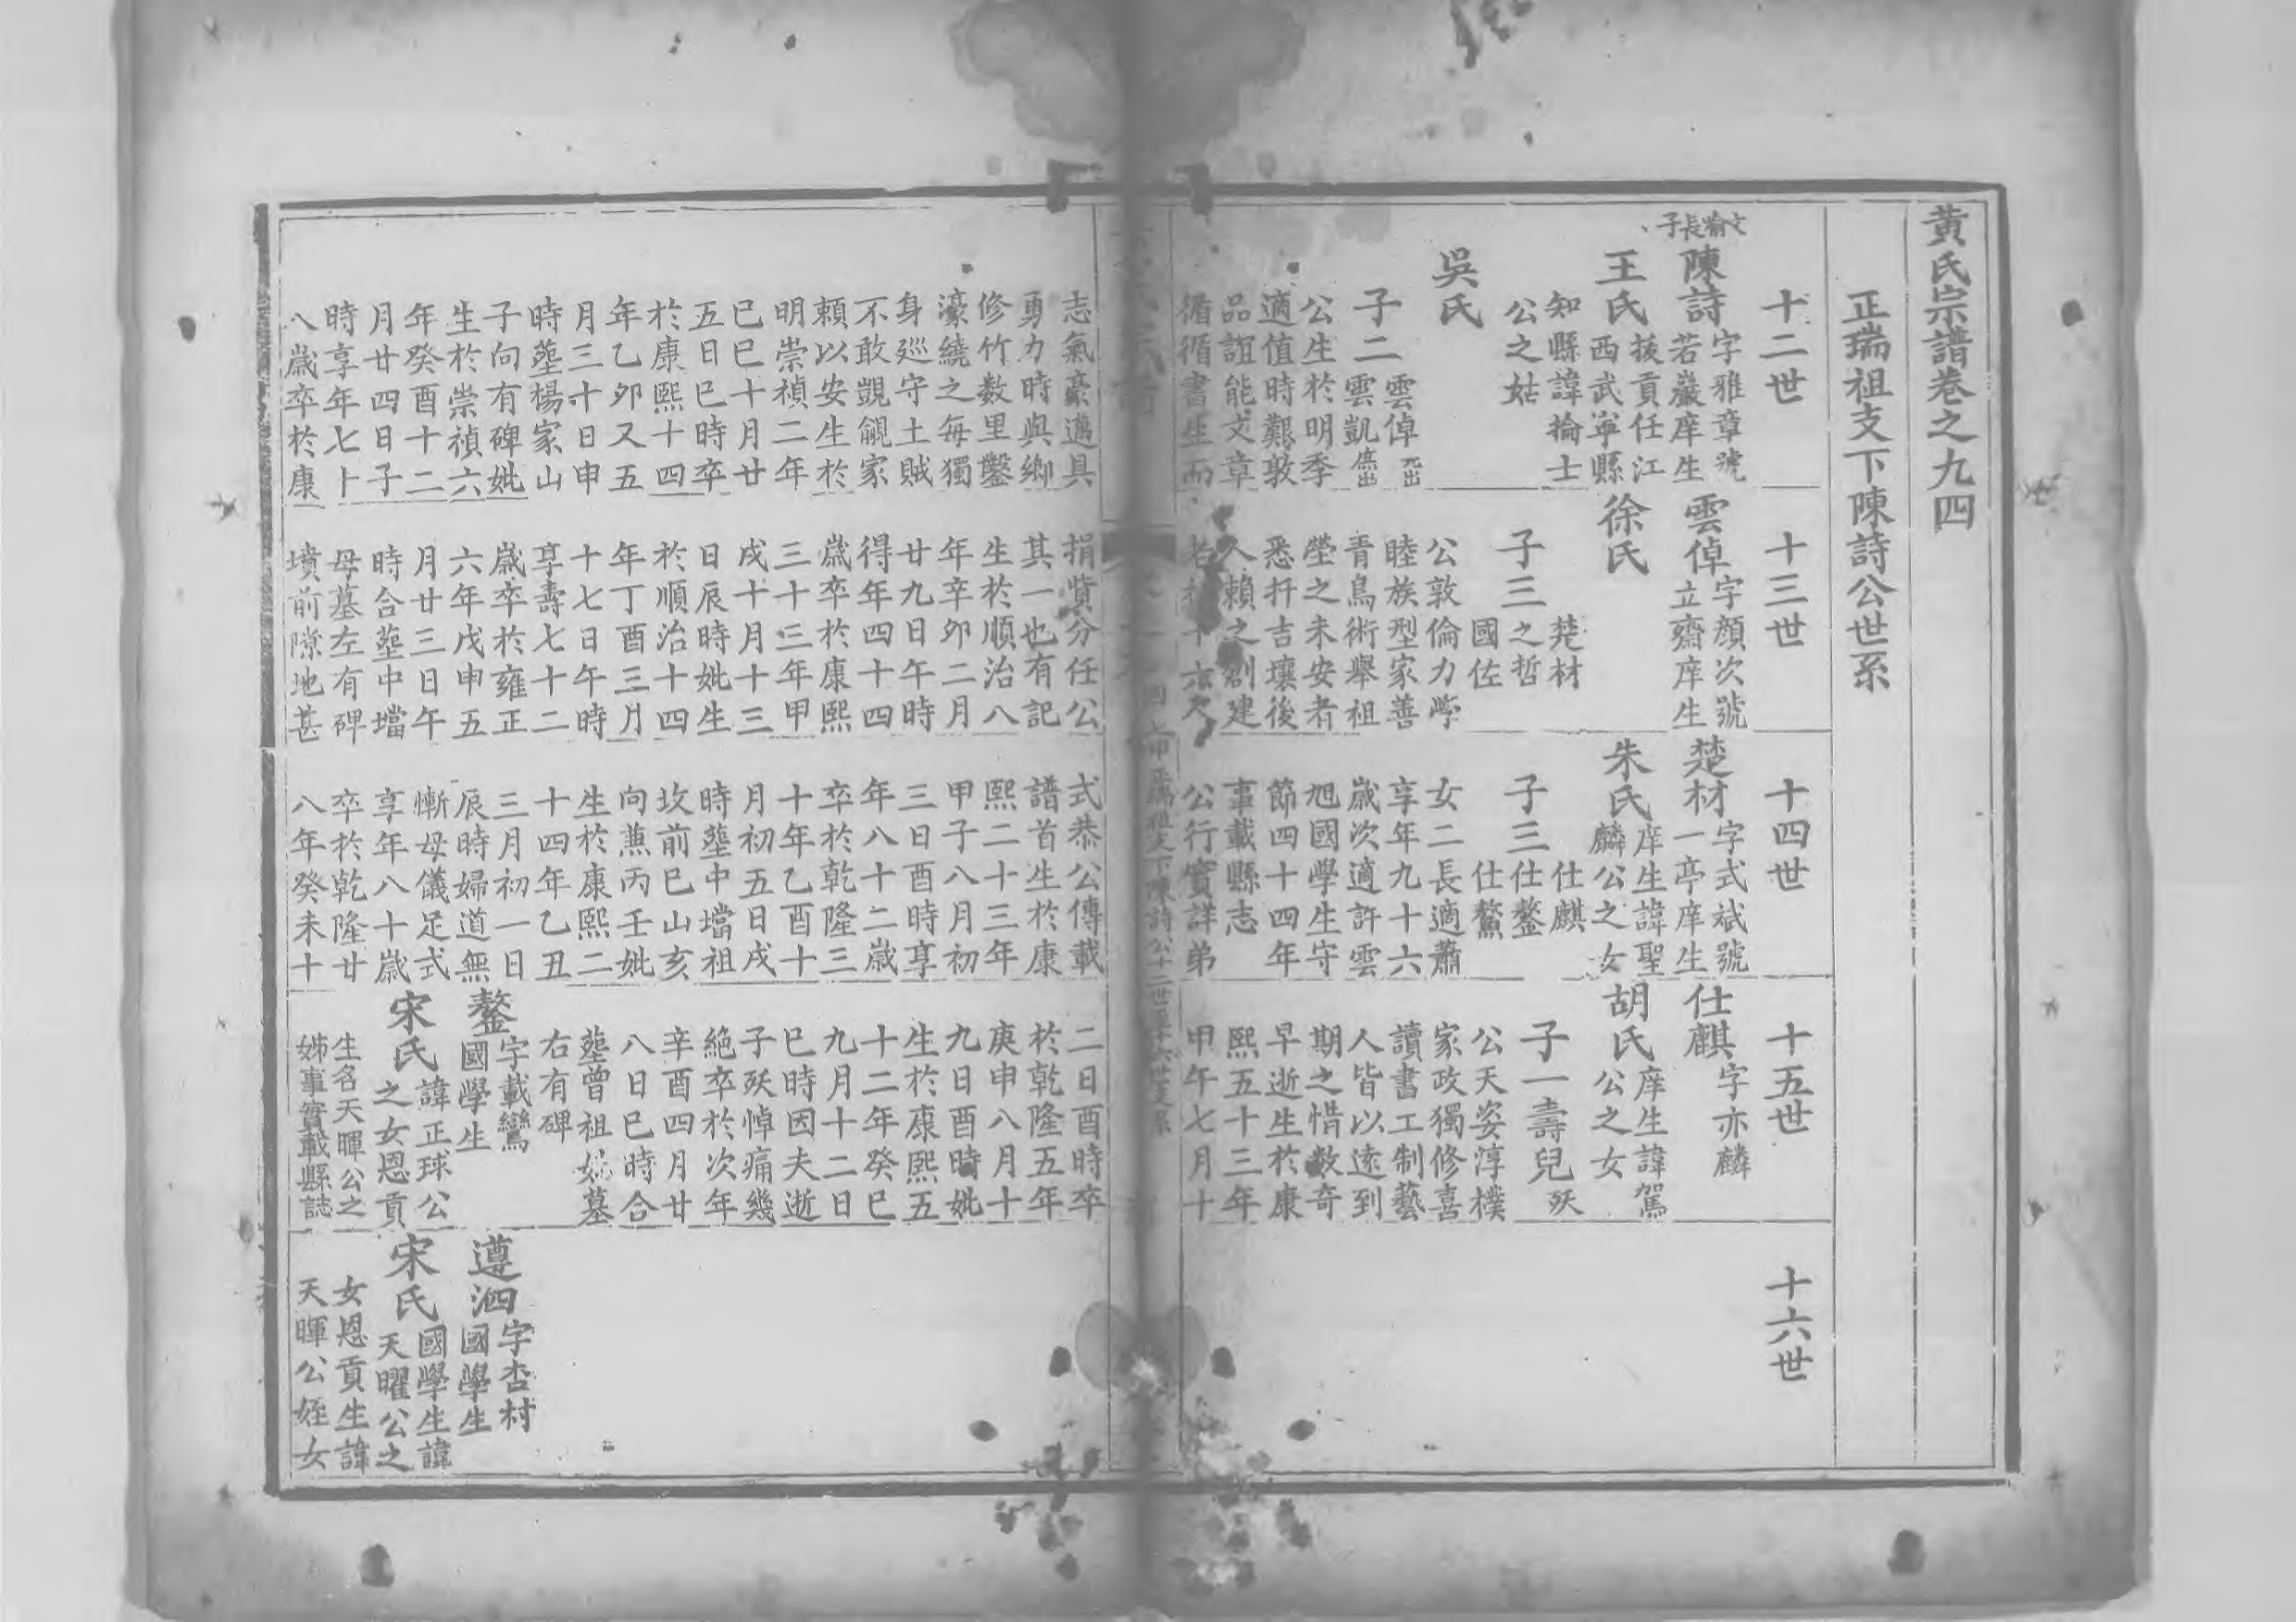 黄氏宗譜卷之九四
正瑞祖支下陳詩公世系
十二世
文喻長子
陳詩
字雅章號
若巖庠生
王氏
拔貢任江
西武寧縣
知縣諱掄士
公之姑
吳氏
子二雲倬元出
雲凱庶出
公生於明季
適值時艱敦
品誼能文章
循循書生而
十三世
雲倬
字顏次號
立齋庠生
徐氏
楚材
子三之哲
國佐
公敦倫力學
睦族型家善
青鳥術舉祖
瑩之未安者
悉扦吉壤後
人賴之創建
十四世
楚材
字式斌號
一亭庠生
朱氏
庠生諱聖
麟公之女
仕麒
子三仕鏊
仕鰲
女二長適蕭
享年九十六
歲次適許雲
旭國學生守
節四十四年
事載縣志
公行實詳弟
十五世
仕麒
字亦麟
胡氏
庠生諱駕
公之女
子一壽兒殀
公天姿淳樸
家政獨修喜
讀書工制藝
人皆以遠到
期之惜数奇
早逝生於康
熙五十三年
甲午七月十
十六世
志氣豪邁具
勇力時與鄉
修竹数里鑿
濠繞之每獨
身廵守土賊
不敢覬覦家
頼以安生於
明崇禎二年
已巳十月廿
五日巳時卒
於康熙十四
年乙夘又五
月三十日申
時塟楊家山
子向有碑妣
生於崇禎六
年癸酉十二
月廿四日子
時享年七十
八歲卒於康
捐貲分任公
其一也有記
生於順治八
年辛夘二月
廿九日午時
得年四十四
歲卒於康熙
三十三年甲
戌十月十三
日辰時妣生
於順治十四
年丁酉三月
十七日午時
享壽七十二
歲卒於雍正
六年戊申五
月廿三日午
時合塟中壋
母墓左有碑
墳前隙地甚
式恭公傳載
譜首生於康
熙二十三年
甲子八月初
三日酉時享
年八十二歲
卒於乾隆三
十年乙酉十
月初五日戌
時塟中壋祖
坟前巳山亥
向蕪丙壬妣
生於康熙二
十四年乙丑
三月初一日
辰時婦道無
慚母儀足式
享年八十歲
卒於乾隆廿
八年癸未十
二日酉時卒
於乾隆五年
庚申八月十
九日酉時妣
生於康熙五
十二年癸巳
九月十二日
巳時因夫逝
子殀悼痛幾
絕卒於次年
辛酉四月廿
八日巳時合
塟曾祖妣墓
右有碑
鏊
字載鸞
國學生
宋氏
諱正球公
之女恩貢
生名天暉公之
姊事實載縣誌
遵泗
字杏村
國學生
宋氏
國學生諱
天曜公之
女恩貢生諱
天暉公姪女